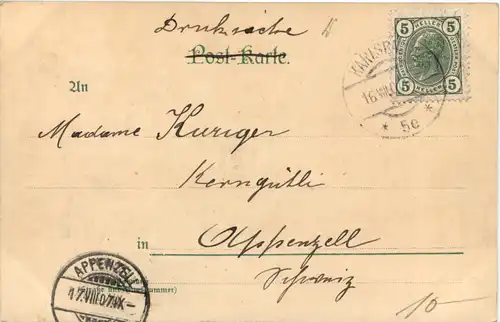 Drucksache
Post-Karte.
5 HELLER 5
5 HELLER 5
KARLSB
16 VIII
* 5e *
An
Madame Kuriger
Kerngütli
in Appenzell
Schweiz
APPENZELL
17.VIII.07.IX-
10-